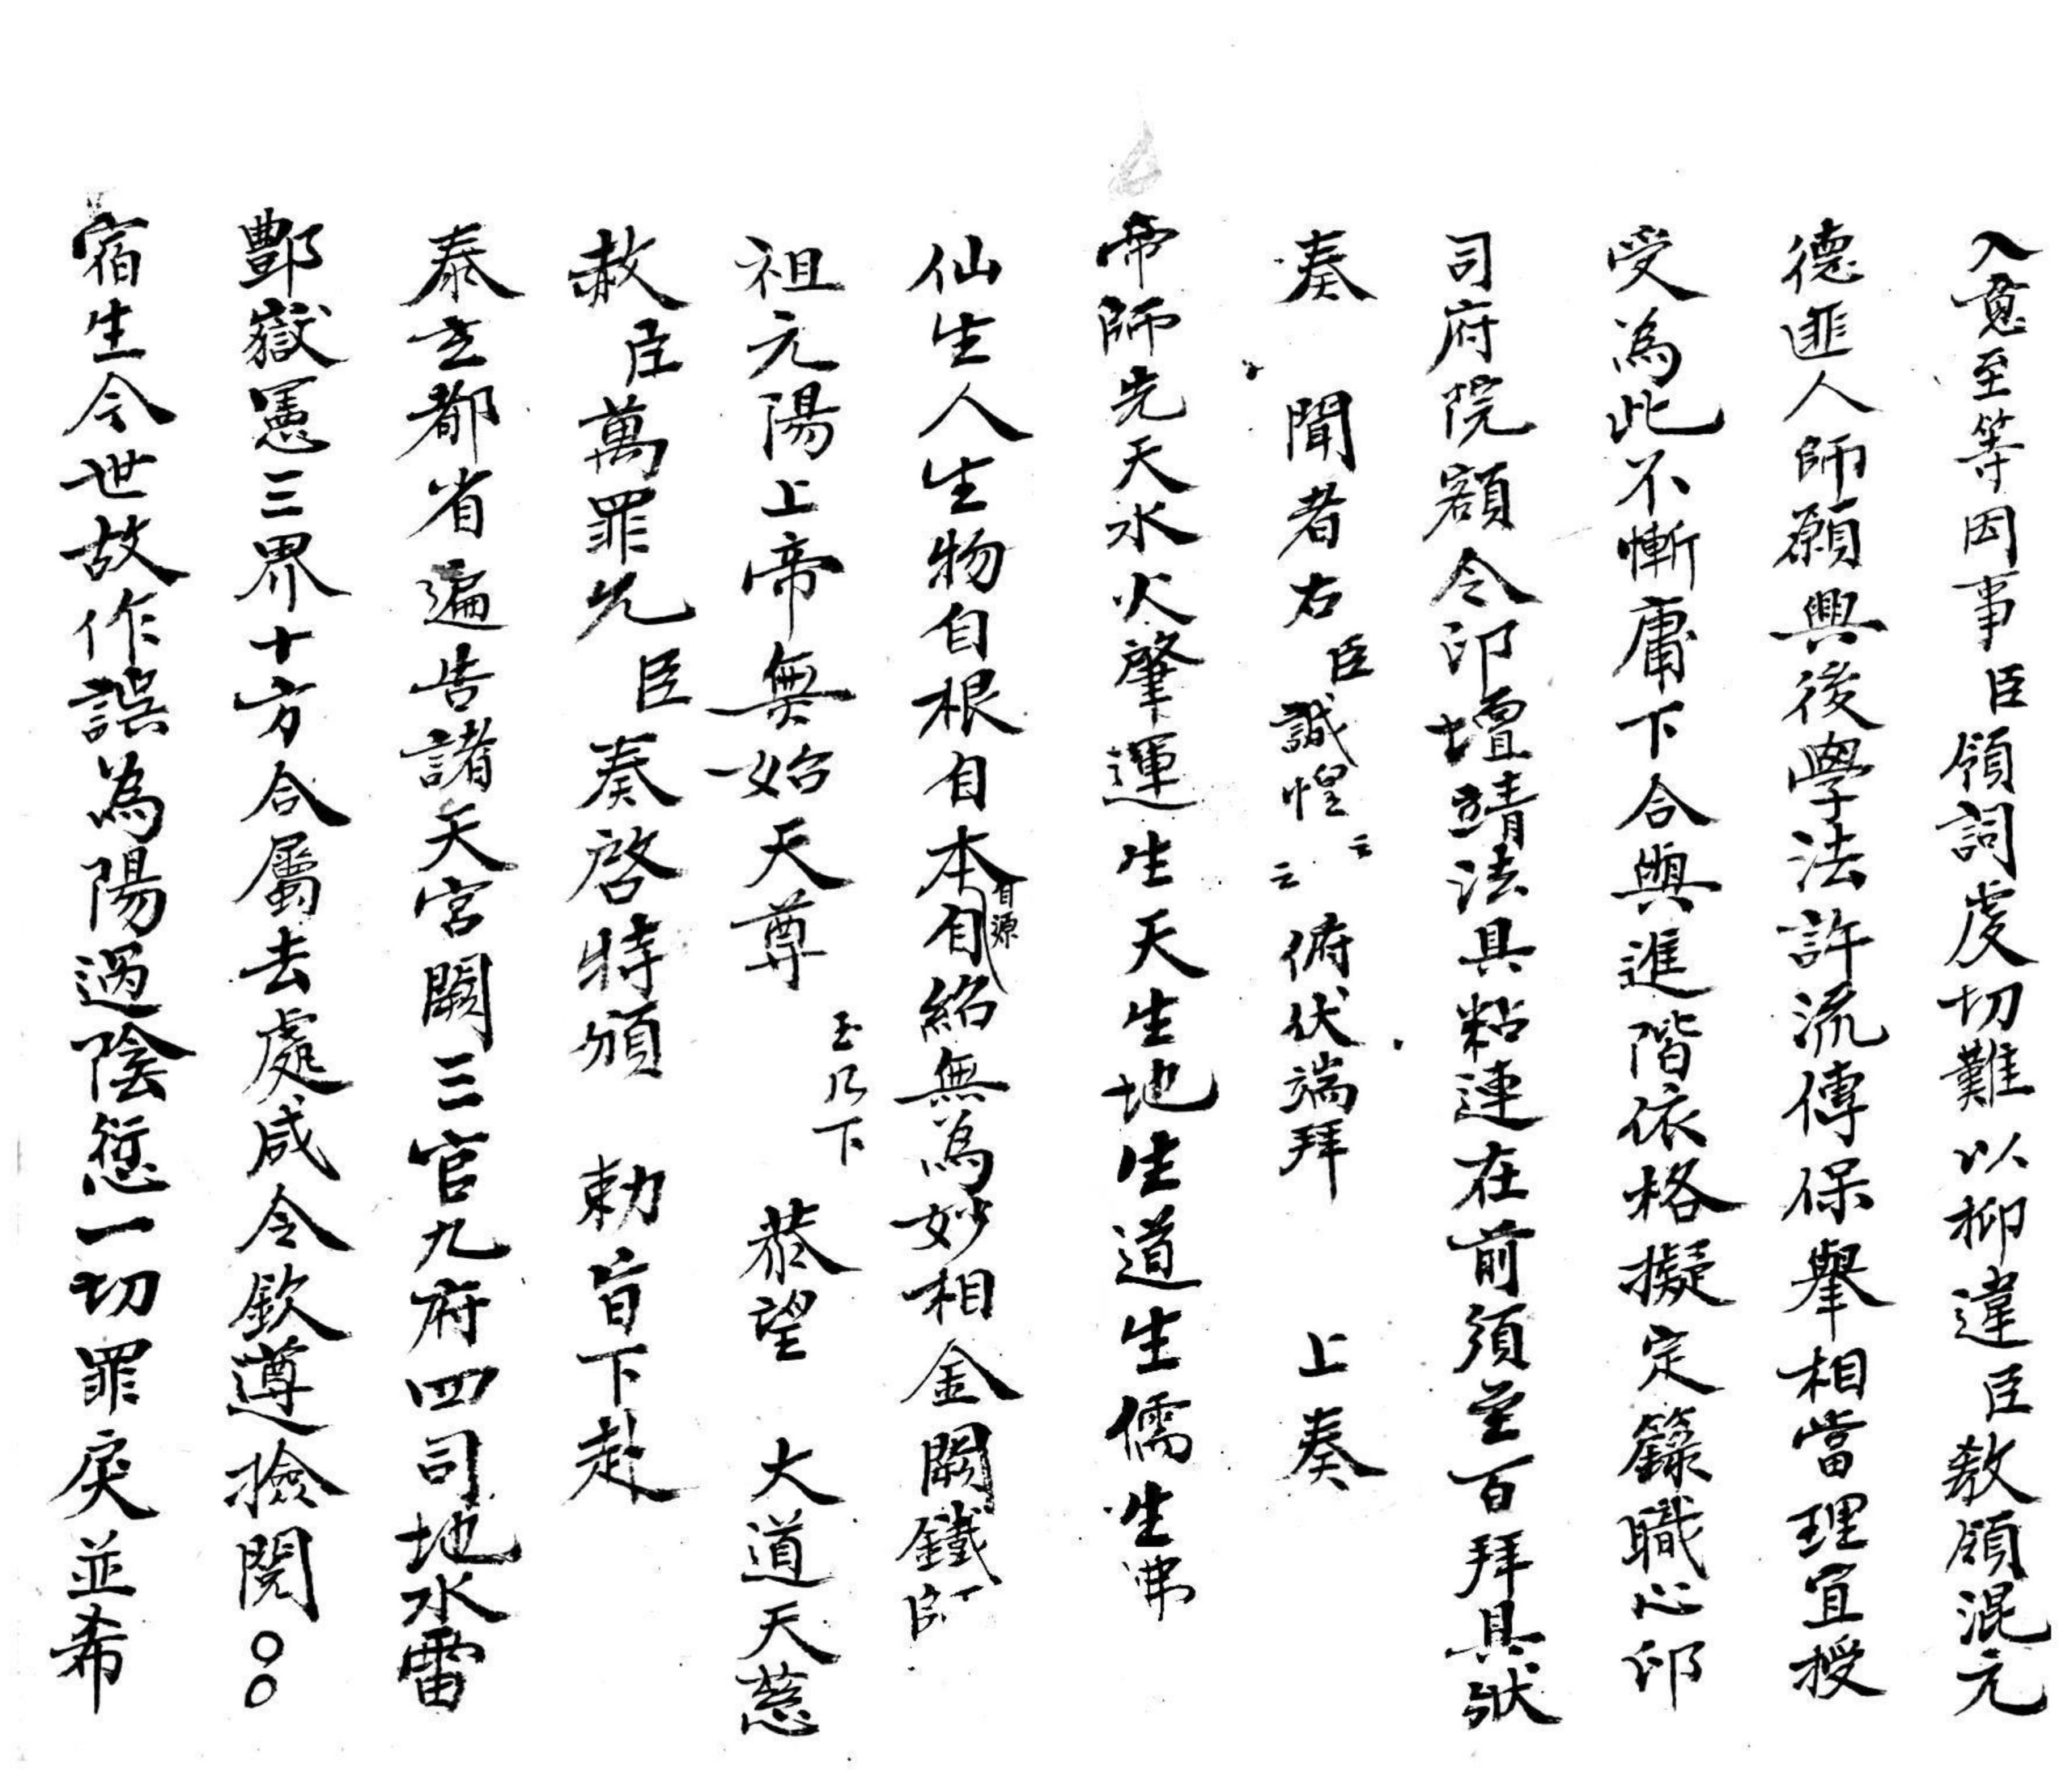 入意至等因事臣領詞虔切難以抑違臣教領混元
德匪人師願興後學法許流傳保舉相當理宜授
受為此不慚庸下合與進階依格擬定籙職心印
司府院額令印壇靖法具粘連在前須至百拜具狀
奏　聞者右臣誠惶云云俯伏端拜　上奏
帝師先天水火肇運生天生地生道生儒生弗
仙生人生物自根自本自源自紹無為妙相金闕鐵師
祖元陽上帝無始天尊　玉几下　恭望　大道天慈
赦臣萬罪允臣奏啓特頒　勅旨下赴
泰玄都省遍告諸天宮闕三官九府四司地水雷
酆嶽憲三界十方合屬去處咸令欽遵撿閱〇〇
宿生今世故作誤為陽過陰愆一切罪戾並希